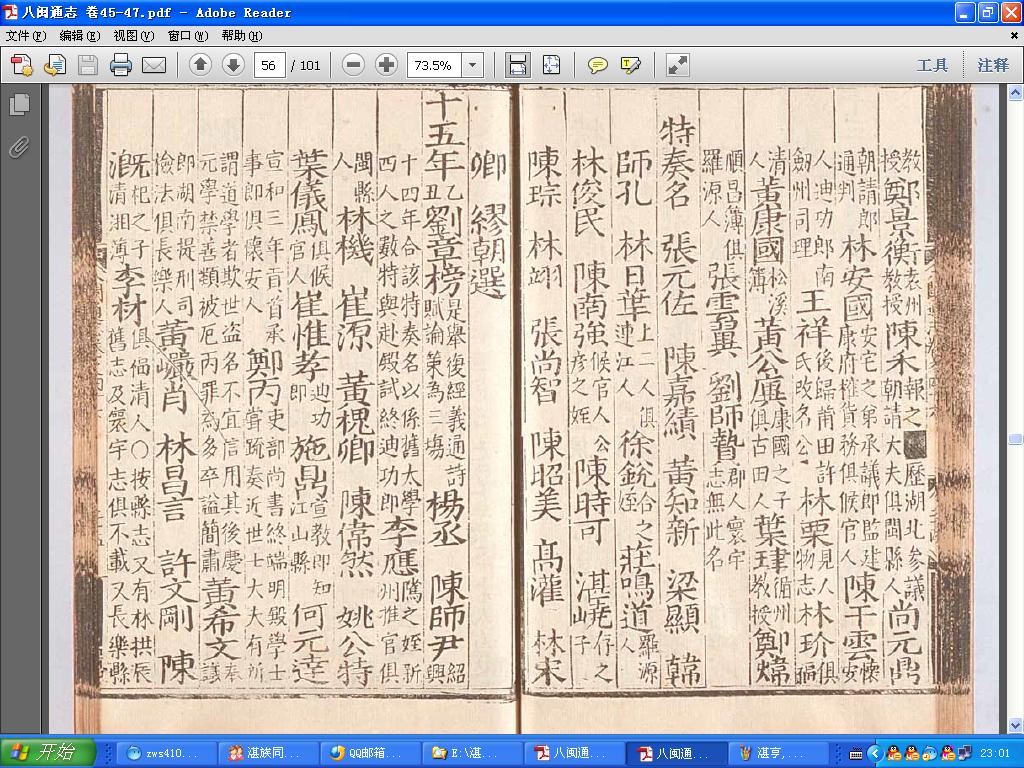 八闽通志 卷45-47.pdf - Adobe Reader
文件(F) 编辑(E) 视图(V) 窗口(W) 帮助(H)
56 / 101 73.5% 工具 注释
教授鄭景衡袁州教授陳禾報之朝請大夫俱閩縣人歷湖北參議尚元鼎
朝請郎通判林安國安宅之弟承議郎監建康府榷貨務俱候官人陳千雲懷安
人迪功郎南劍州司理王祥後歸莆田許氏改名公林栗見人物志林玠俱福
清人黃康國松溪簿黃公康國之子俱古田人葉肆循州教授鄭煒
順昌簿俱羅源人張雲翼 劉師摯郡人寰宇志無此名
特奏名 張元佐 陳嘉績 黃知新 梁顯 韓
師孔 林日華上二人俱連江人徐銳合之姪莊鳴道羅源人
林俊民 陳南強候官人公彥之姪陳時可 湛堯存之子
陳琮 林翊 張尚智 陳昭美 高灌 林宋
卿 繆朝選
十五年乙丑劉章榜是舉復經義通詩賦論策為三場楊丞 陳師尹紹興
十四年合該特奏名以係舊太學四人之數特與赴殿試終迪功郎李應騰之姪新州推官俱
閩縣人林機 崔源 黃槐卿 陳常然 姚公特
葉儀鳳俱候官人崔惟孝迪功郎施鼎宣教郎知江山縣何元達
宣和三年首承事郎俱懷安人鄭丙吏部尚書終端明殿學士嘗疏奏近世士大夫有所
謂道學者欺世盜名不宜信用其後慶元學禁善類被厄丙罪為多卒諡簡肅黃希文議奉
郎湖南提刑司儉法俱長樂人黃巘肖 林昌言 許文剛 陳
洎清湘簿李材俱福清人○按縣志又有林拱辰舊志及寰宇志俱不載又長樂縣
开始 zws410... 湛族同... QQ邮箱... E:\湛... 八闽通... 八闽通... 湛亨,... 23:01